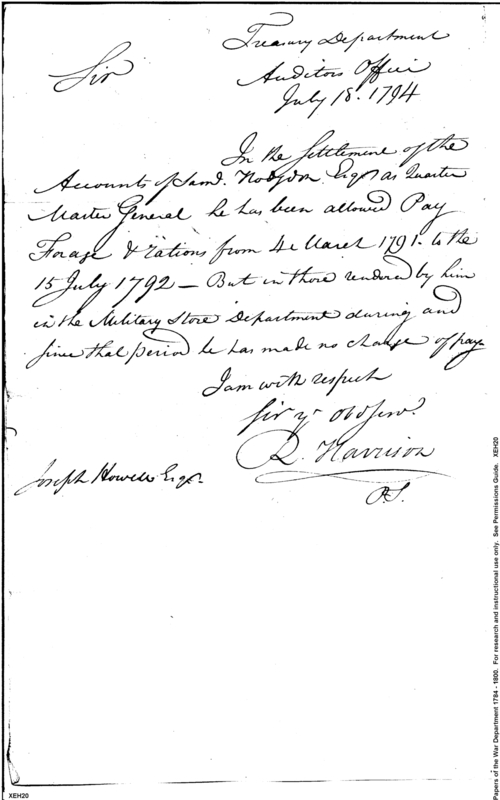 Treasury Department
Auditors Office
July 18. 1794
Sir
In the Settlement of the
Accounts of Saml. Hodgdon Esqr as Quarter
Master General he has been allowed Pay
Forage & rations from 4 March 1791. to the
15 July 1792 — But in those rendered by him
in the Military Store Department during and
since that period he has made no charge of pay
I am with respect
Sir yr Obd Servt.
R. Harrison
Joseph Howell Esqr
XEH20
Papers of the War Department 1784 - 1800. For research and instructional use only. See Permissions Guide. XEH20